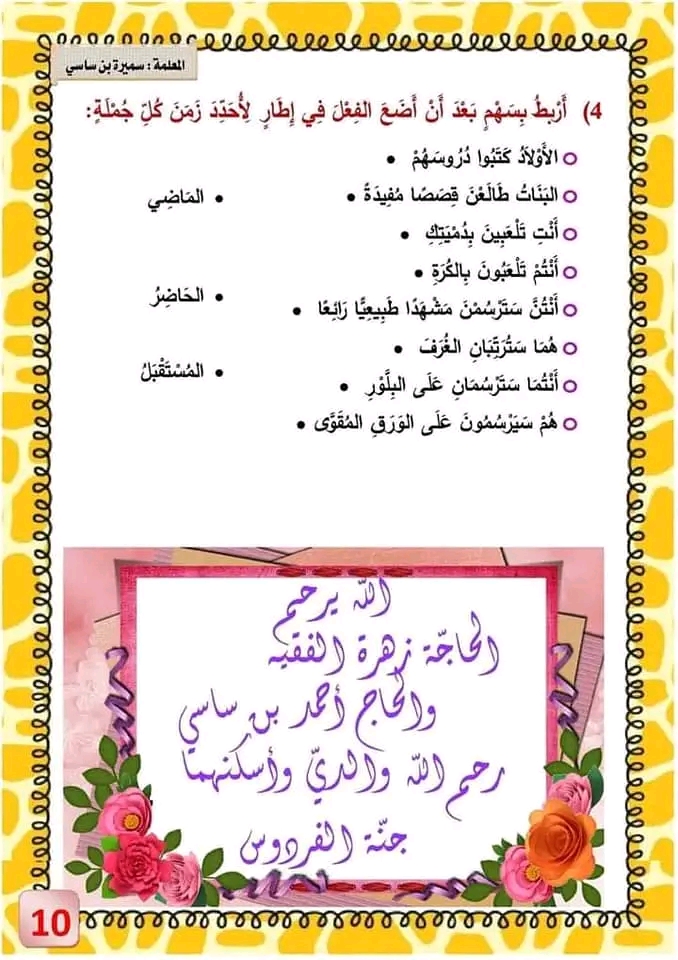 المعلمة : سميرة بن ساسي
4) أَرْبِطُ بِسَهْمٍ بَعْدَ أَنْ أَضَعَ الفِعْلَ فِي إِطَارٍ لِأُحَدِّدَ زَمَنَ كُلِّ جُمْلَةٍ:
الأَوْلَادُ كَتَبُوا دُرُوسَهُمْ •
البَنَاتُ طَالَعْنَ قِصَصًا مُفِيدَةً •
• المَاضِي
أَنْتِ تَلْعَبِينَ بِدُمْيَتِكِ •
أَنْتُمْ تَلْعَبُونَ بِالكُرَةِ •
• الحَاضِرُ
أَنْتُنَّ سَتَرْسُمْنَ مَشْهَدًا طَبِيعِيًّا رَائِعًا •
هُمَا سَتُرَتِّبَانِ الغُرَفَ •
• المُسْتَقْبَلُ
أَنْتُمَا سَتَرْسُمَانِ عَلَى البِلَّوْرِ •
هُمْ سَيَرْسُمُونَ عَلَى الوَرَقِ المُقَوَّى •
اللّه يرحم
الحاجّة زهرة الفقيه
والحاج أحمد بن ساسي
رحم اللّه والديّ وأسكنهما
جنّة الفردوس
10